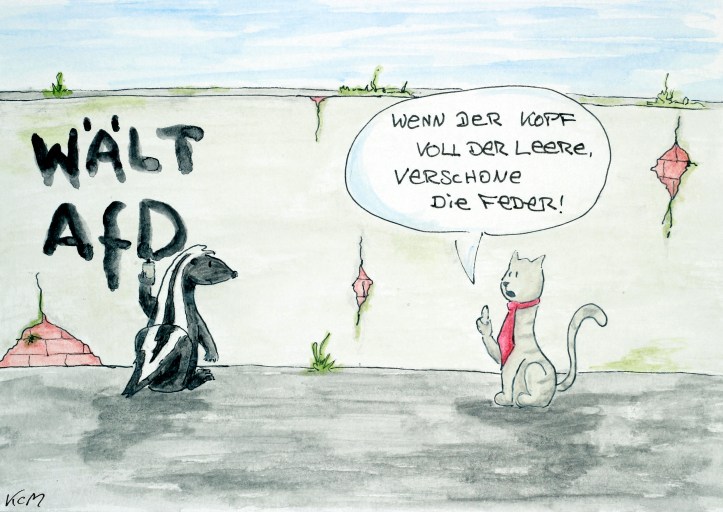 WÄLT
AfD
WENN DER KOPF
VOLL DER LEERE,
VERSCHONE
DIE FEDER!
KCM